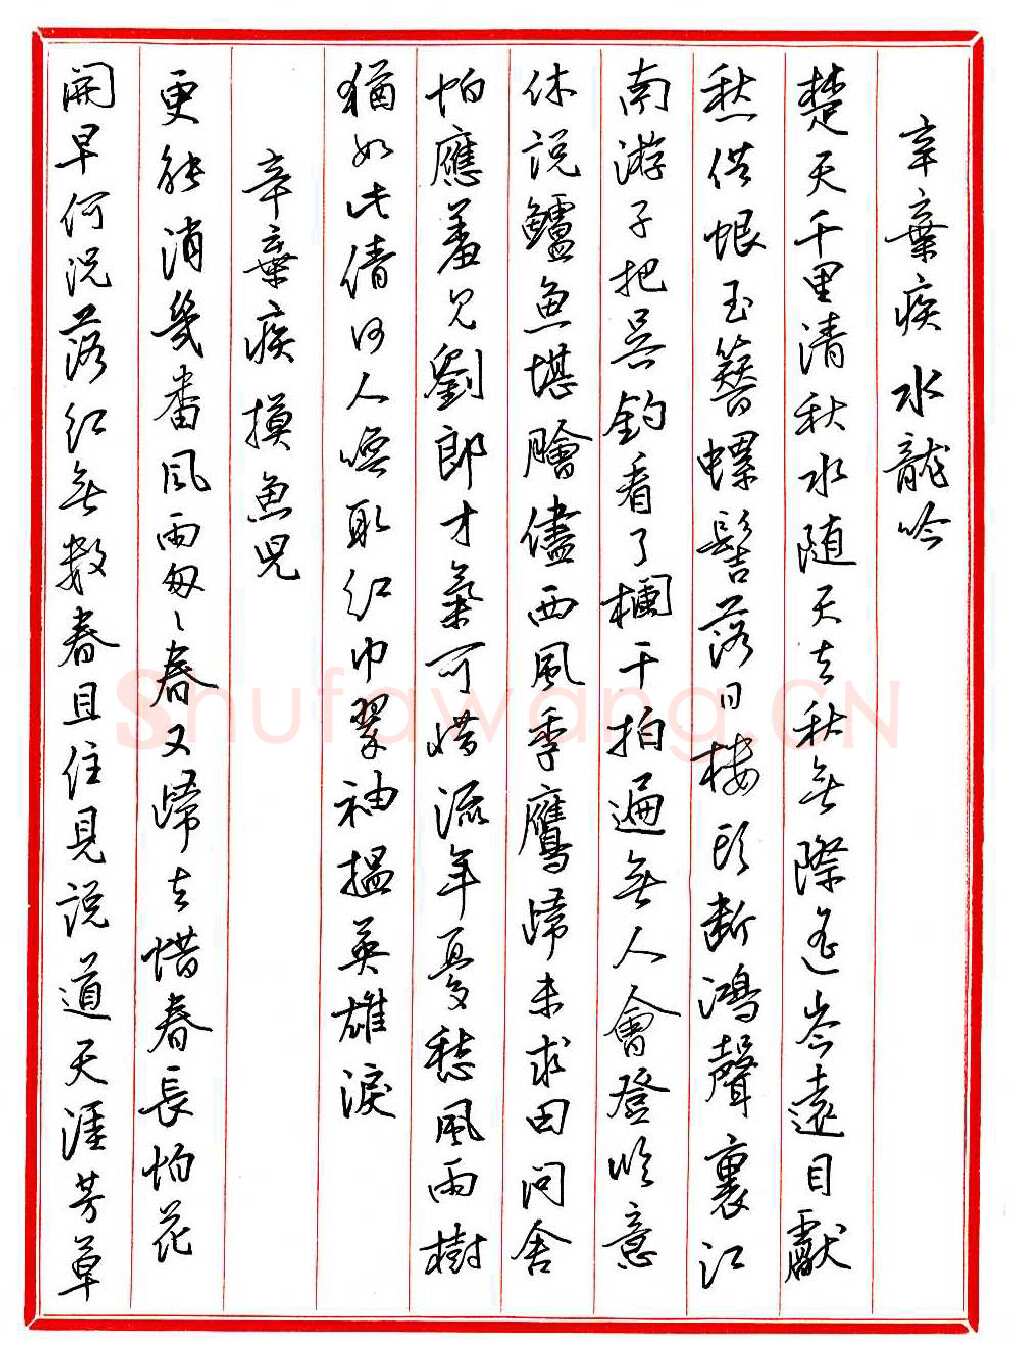 辛棄疾水龍吟
楚天千里清秋水随天去秋無際遥岑遠目獻
愁供恨玉簪螺髻落日樓頭断鴻聲裏江
南游子把吴鈎看了欄干拍遍無人會登臨意
休説鱸魚堪膾儘西風季鷹歸未求田问舍
怕應羞見劉郎才氣可惜流年憂愁風雨樹
猶如此倩何人唤取红巾翠袖揾英雄淚
辛棄疾摸魚兒
更能消幾番風雨匆〻春又歸去惜春長怕花
開早何況落红無数春且住見説道天涯芳草
Shufawang.CN